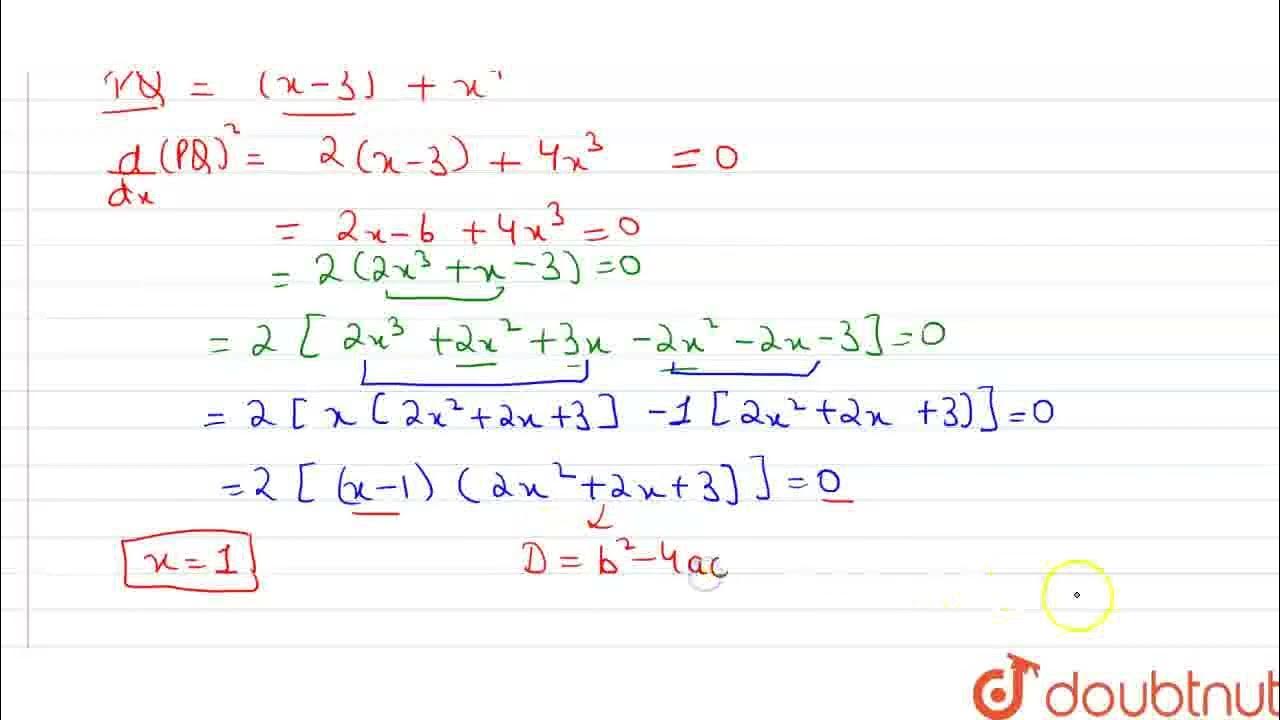 = (x-3) + x
d/dx (PQ)² = 2(x-3) + 4x³ = 0
= 2x-6 + 4x³ = 0
= 2(2x³ + x - 3) = 0
= 2 [ 2x³ + 2x² + 3x - 2x² - 2x - 3] = 0
= 2 [ x ( 2x² + 2x + 3] - 1 [ 2x² + 2x + 3)] = 0
= 2 [ (x-1) ( 2x² + 2x + 3] ] = 0
x = 1 D = b² - 4ac
doubtnut